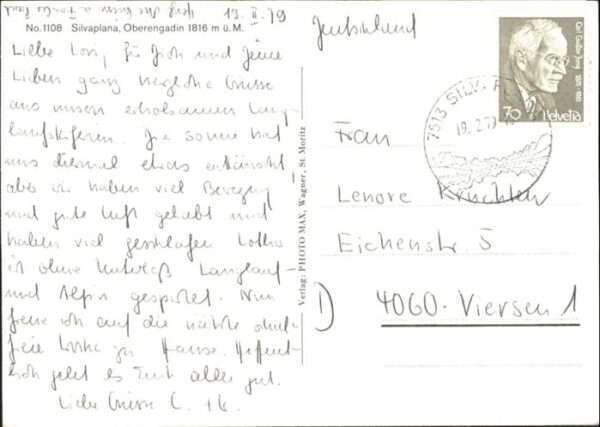 13. II. 79
No. 1108 Silvaplana, Oberengadin 1816 m ü.M.
Liebe Lore, für Dich und Deine
Lieben ganz herzliche Grüsse
aus unseren erholsamen Lang-
laufskiferien. Die Sonne hat
uns diesmal etwas enttäuscht
aber wir haben viel Bewegung
und gute Luft gehabt und
haben viel geschlafen. Lothar
ist ohne Unterlaß Langlauf-
und Alpin gespurtet. Nun
freue ich auf die nächste
freie Woche zu Hause. Hoffent-
lich geht es Euch allen gut.
Liebe Grüsse
Verlag: PHOTO MAX, Wagner, St. Moritz
Deutschland
Carl Gustav Jung 1875-1961
70 Helvetia
7513 SILV
19.2.79
Frau
Lenore Kruchten
Eichenstr. 5
D 4060-Viersen 1